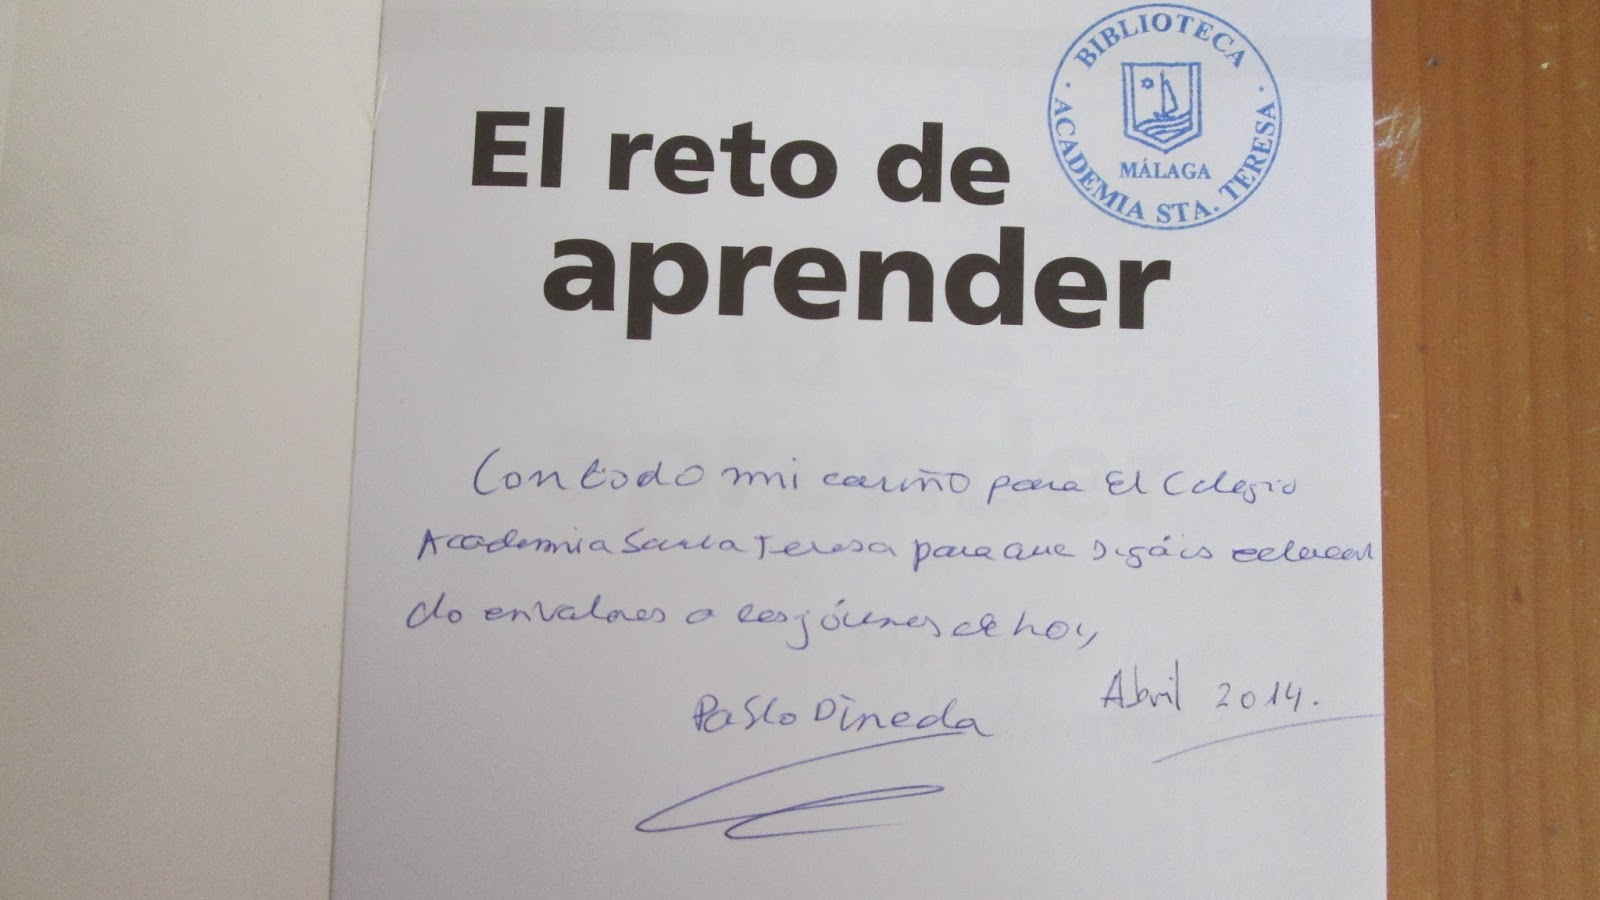 El reto de
aprender
BIBLIOTECA
MÁLAGA
ACADEMIA STA. TERESA
Con todo mi cariño para El Colegio
Academia Santa Teresa para que sigáis educan
do en valores a los jóvenes de hoy
Abril 2014.
Pablo Pineda